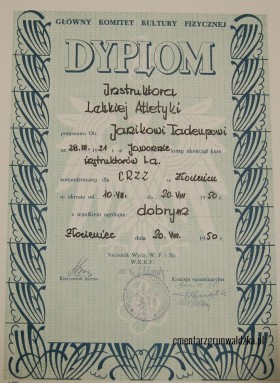 GŁÓWNY KOMITET KULTURY FIZYCZNEJ
DYPLOM
Instruktora
Lekkiej Atletyki
przyznano Ob. Jarikowi Tadeuszowi
ur. 28.III.1921 r. Jaworzie który ukończył kurs
instruktorów L.a.
zorganizowany dla CRZZ w Złocieńcu
w okresie od 10.VIII. do 20.VIII 1950 r.
z wynikiem ogólnym dobrym
Złocieniec dnia 20.VIII. 1950 r.
Naczelnik Wydz. W. F. i Sp.
W.K.K.F.
Kierownik kursu
Komisja egzaminacyjna
cmentarzegrunwaldzka.pl